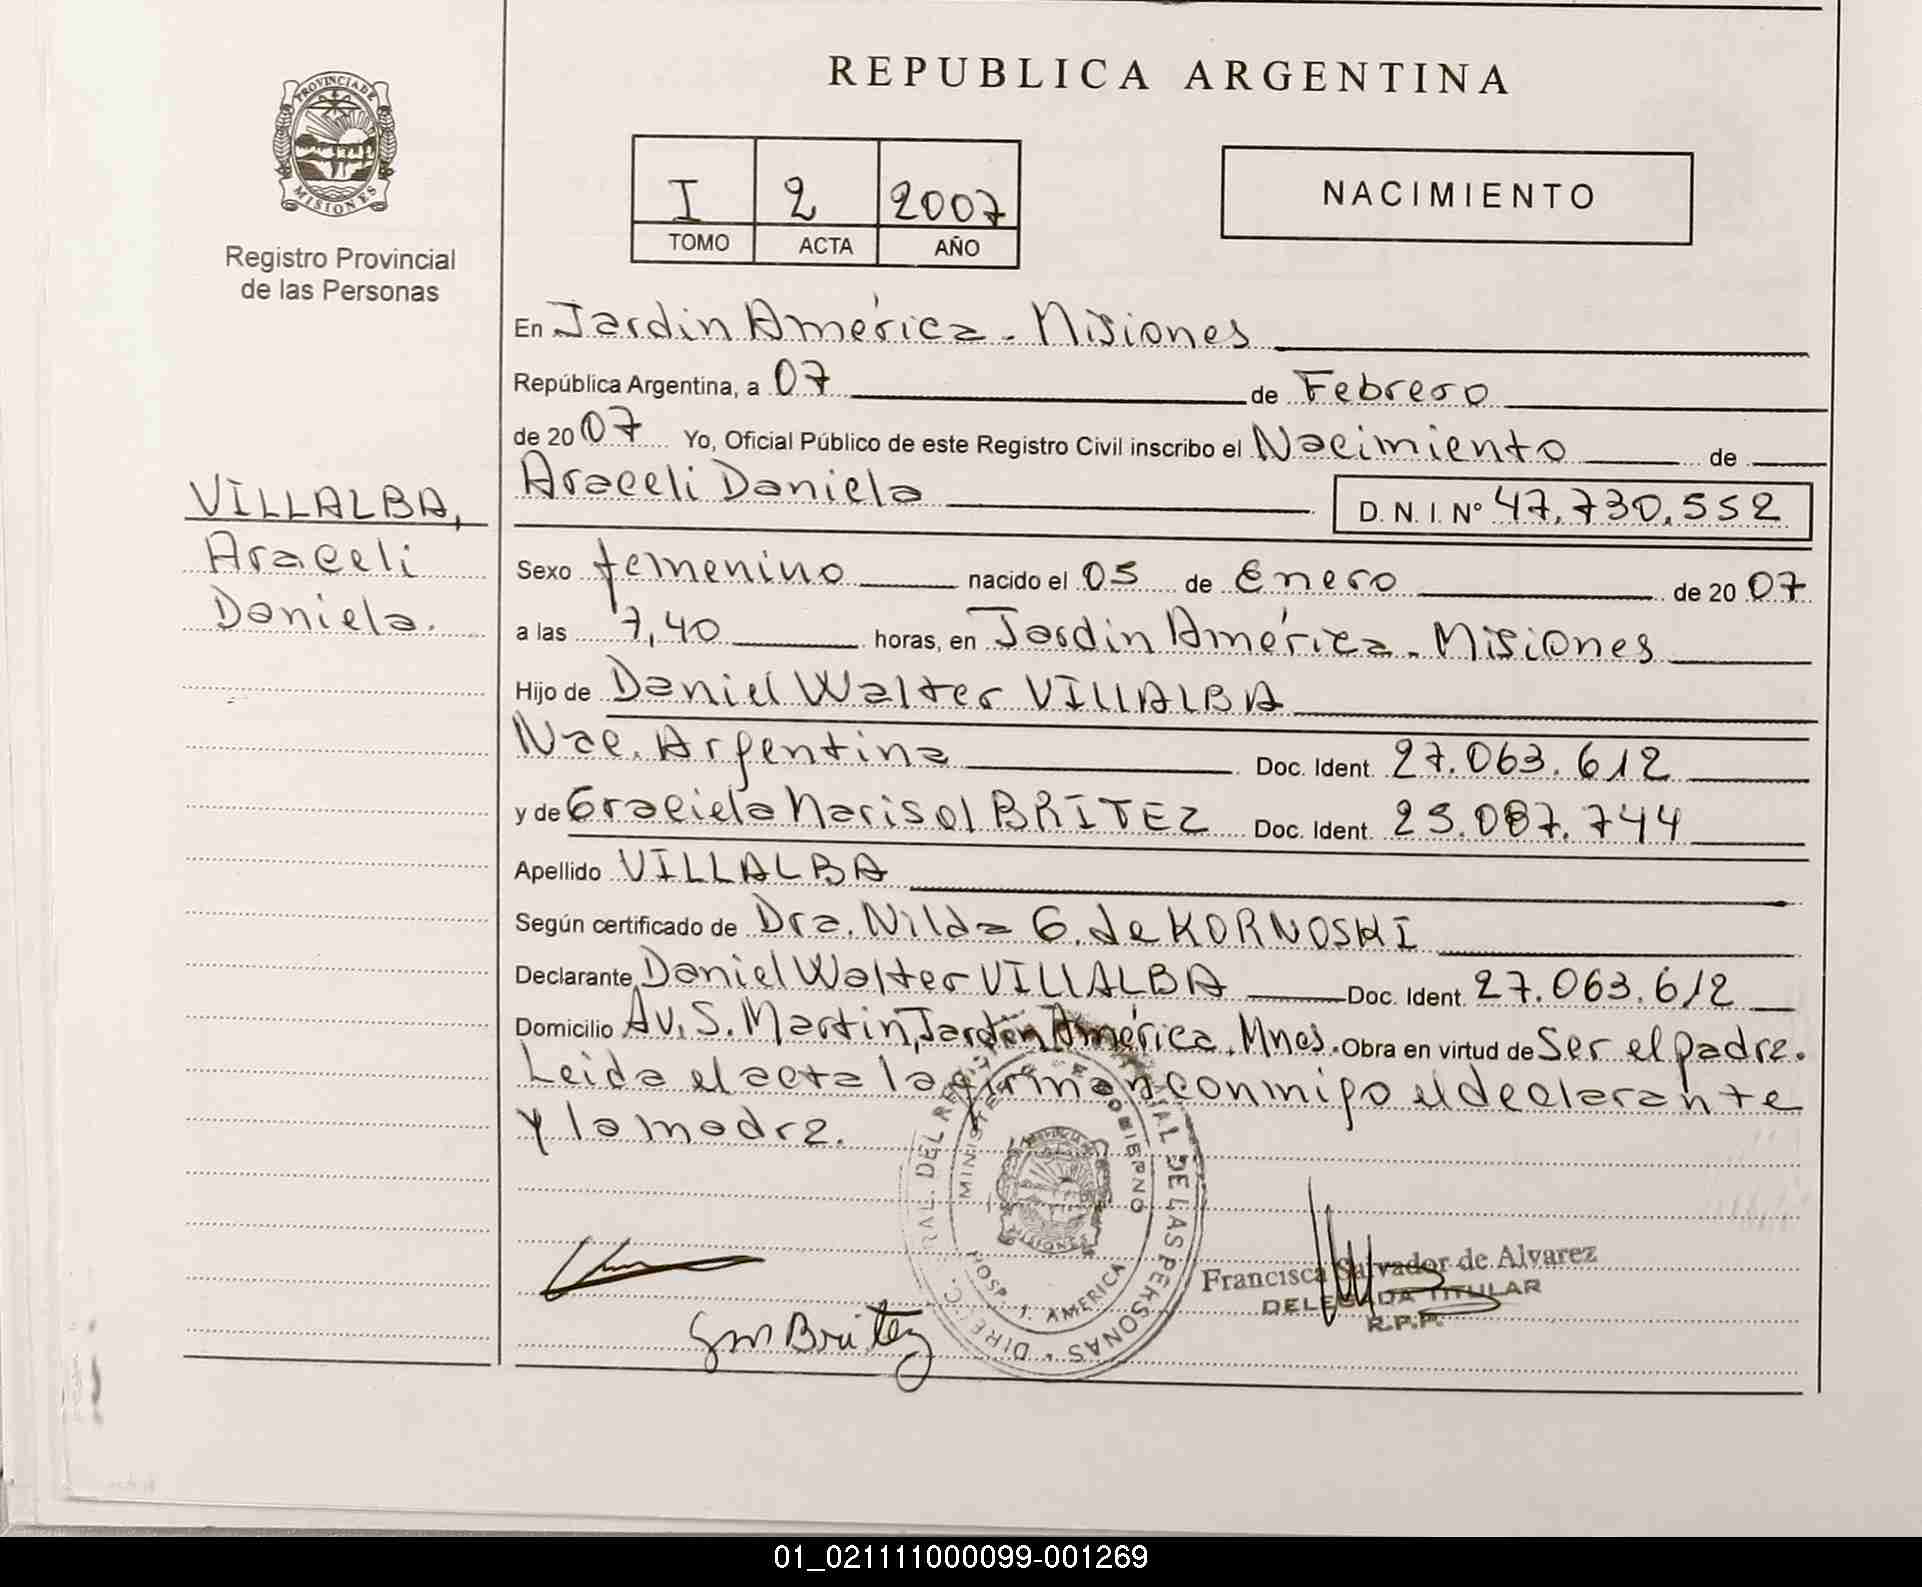 REPUBLICA ARGENTINA
PROVINCIA DE
MISIONES
Registro Provincial
de las Personas
I 2 2007
TOMO ACTA AÑO
NACIMIENTO
En Jardin América - Misiones
República Argentina, a 07 de Febrero
de 2007 Yo, Oficial Público de este Registro Civil inscribo el Nacimiento de
Araceli Daniela D. N. I. N° 47.730.552
VILLALBA,
Araceli
Daniela.
Sexo femenino nacido el 05 de Enero de 2007
a las 7,40 horas, en Jardin América - Misiones
Hijo de Daniel Walter VILLALBA
Nac. Argentina Doc. Ident. 27.063.612
y de Graciela Marisol BRITEZ Doc. Ident. 25.087.744
Apellido VILLALBA
Según certificado de Dra. Nilda G. de KORNOSKI
Declarante Daniel Walter VILLALBA Doc. Ident. 27.063.612
Domicilio Av. S. Martin, Jardin América. Mnes. Obra en virtud de Ser el padre.
Leida el acta la firman conmigo el declarante
y la madre.
MINISTE DE GOBIERNO
DIREC RAL. DEL RE IAL DE LAS PERSONAS
MISIONES
HOSP. J. AMERICA
Francisca Salvador de Alvarez
DELEGADA TITULAR
R.P.P.
GmBritez
01_021111000099-001269